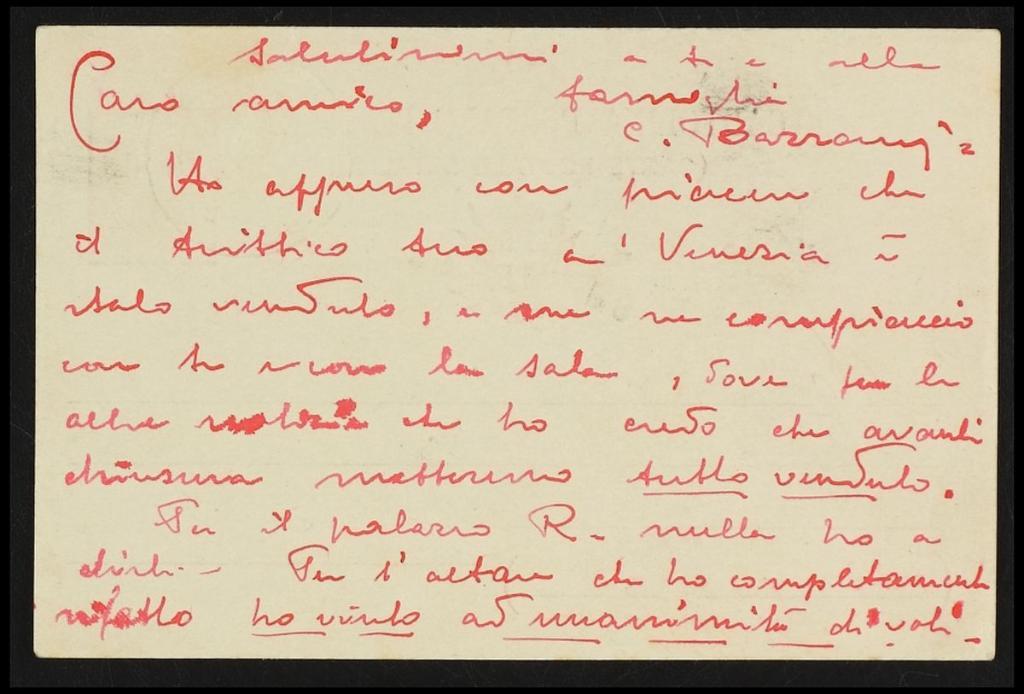 Salutissimi a te e alla
Caro amico, famiglia
C.
Ho appreso con piacere che
il trittico tuo a Venezia è
stato venduto, e me ne compiaccio
con te e con la sala, dove per le
altre notizie che ho credo che avanti
chiusura metteremo tutto venduto.
Per il palazzo R. nulla ho a
dirti. - Per l'altare che ho completamente
rifatto ho vinto ad unanimità di voti.